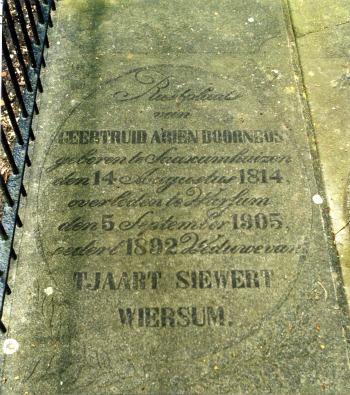 Rustplaats
van
GEERTRUID ARIEN DOORNBOS,
geboren te Saaxumhuizen
den 14 Augustus 1814,
overleden te Warfum
den 5 September 1905,
sedert 1892 Weduwe van
TJAART SIEWERT
WIERSUM.